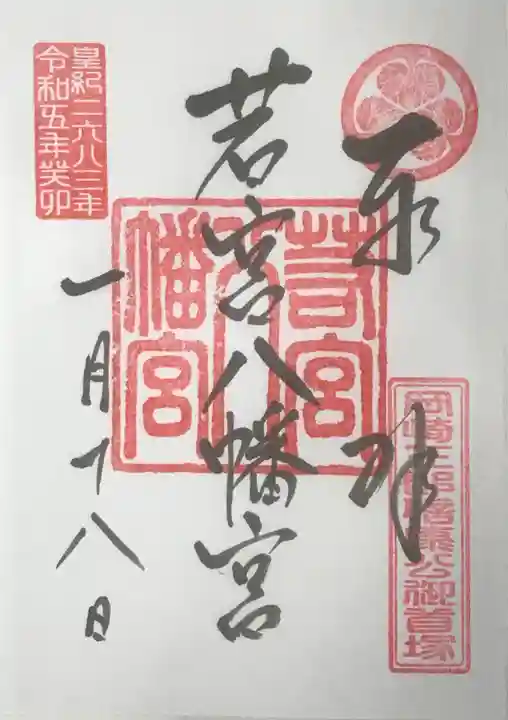 奉拝
岡崎三郎信康公御首塚
若宮八幡宮
若宮八幡宮
皇紀二六八三年
令和五年癸卯
一月十八日